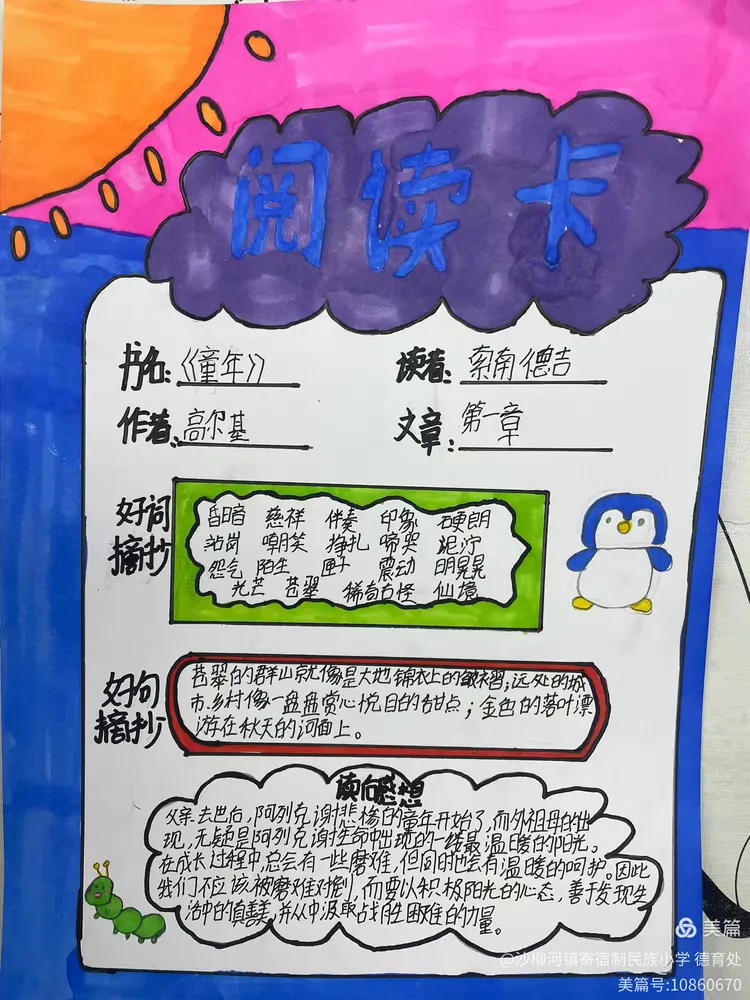 阅读卡
书名：《童年》 读者：索南德吉
作者：高尔基 文章：第一章
好词摘抄
昏暗 慈祥 伴奏 印象 硬朗
站岗 嘲笑 挣扎 啼哭 泥泞
怨气 陌生 匣子 震动 明晃晃
光芒 苍翠 稀奇古怪 仙境
好句摘抄
苍翠的群山就像是大地锦衣上的皱褶；远处的城
市、乡村像一盘盘赏心悦目的甜点；金色的落叶漂
浮在秋天的河面上。
读后感想
父亲去世后，阿列克谢悲惨的童年开始了，而外祖母的出
现，无疑是阿列克谢生命中出现的一缕最温暖的阳光。
在成长过程中，总会有一些磨难，但同时也会有温暖的呵护。因此
我们不应该被磨难打倒，而要以积极阳光的心态，善于发现生
活中的真善美，并从中汲取战胜困难的力量。
美篇
@沙柳河镇寄宿制民族小学 德育处
美篇号:10860670